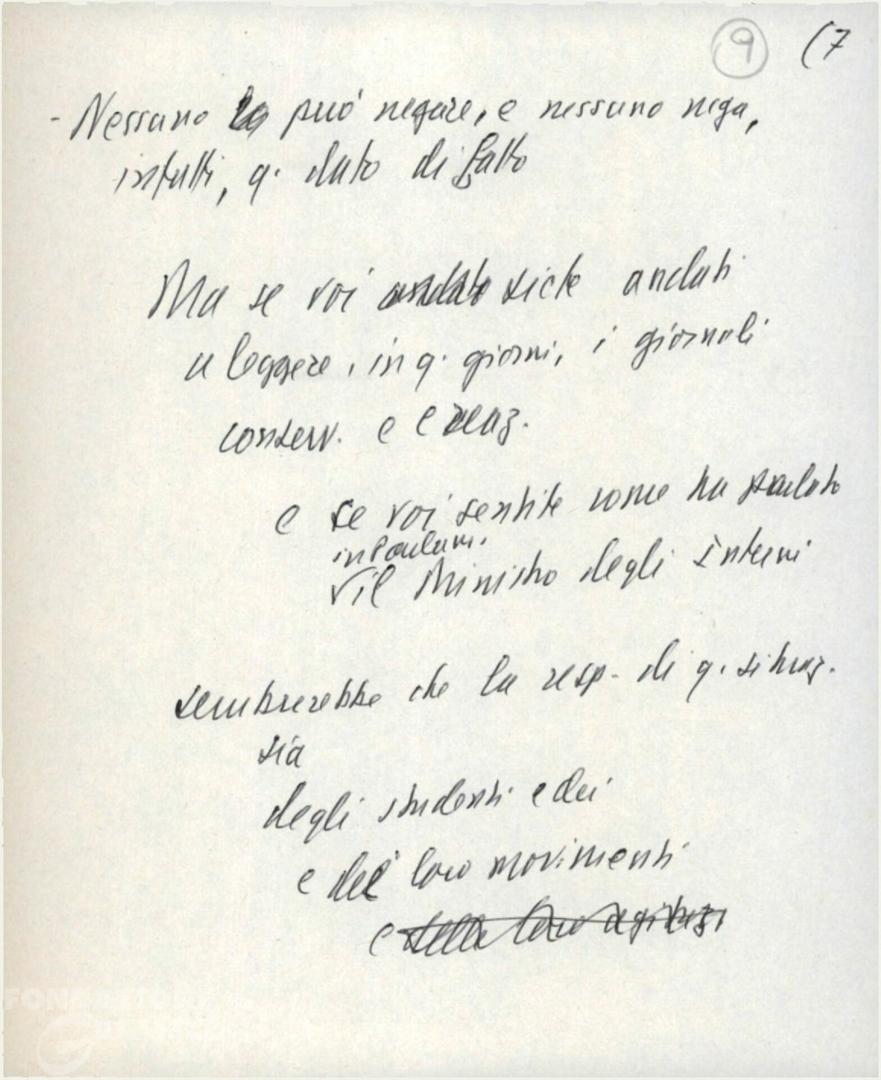 9 (7
- Nessuno lo può negare, e nessuno nega,
infatti, q. dato di fatto
Ma se voi andate siete andati
a leggere, in q. giorni, i giornali
conserv. e
e se voi sentite come ha parlato
in Parlam.
il Ministro degli Interni
sembrerebbe che la resp. di q. situaz.
sia
degli studenti e dei
e dei loro movimenti
e della loro agitaz.
FONDAZIONE